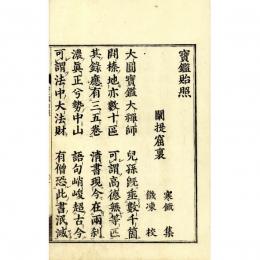 寶鑑貽照
闡提窟裏
寒餓 集
饑凍 校
大圓鑑大禪師 兒孫既垂數千箇
樣地亦數十區 可謂高德無等匹
其錄應有三五卷 清書現今在兩刹
濃眞正兮勢中山 語句峭峻超古今
可謂法中大法財 有僧恐此書泯滅